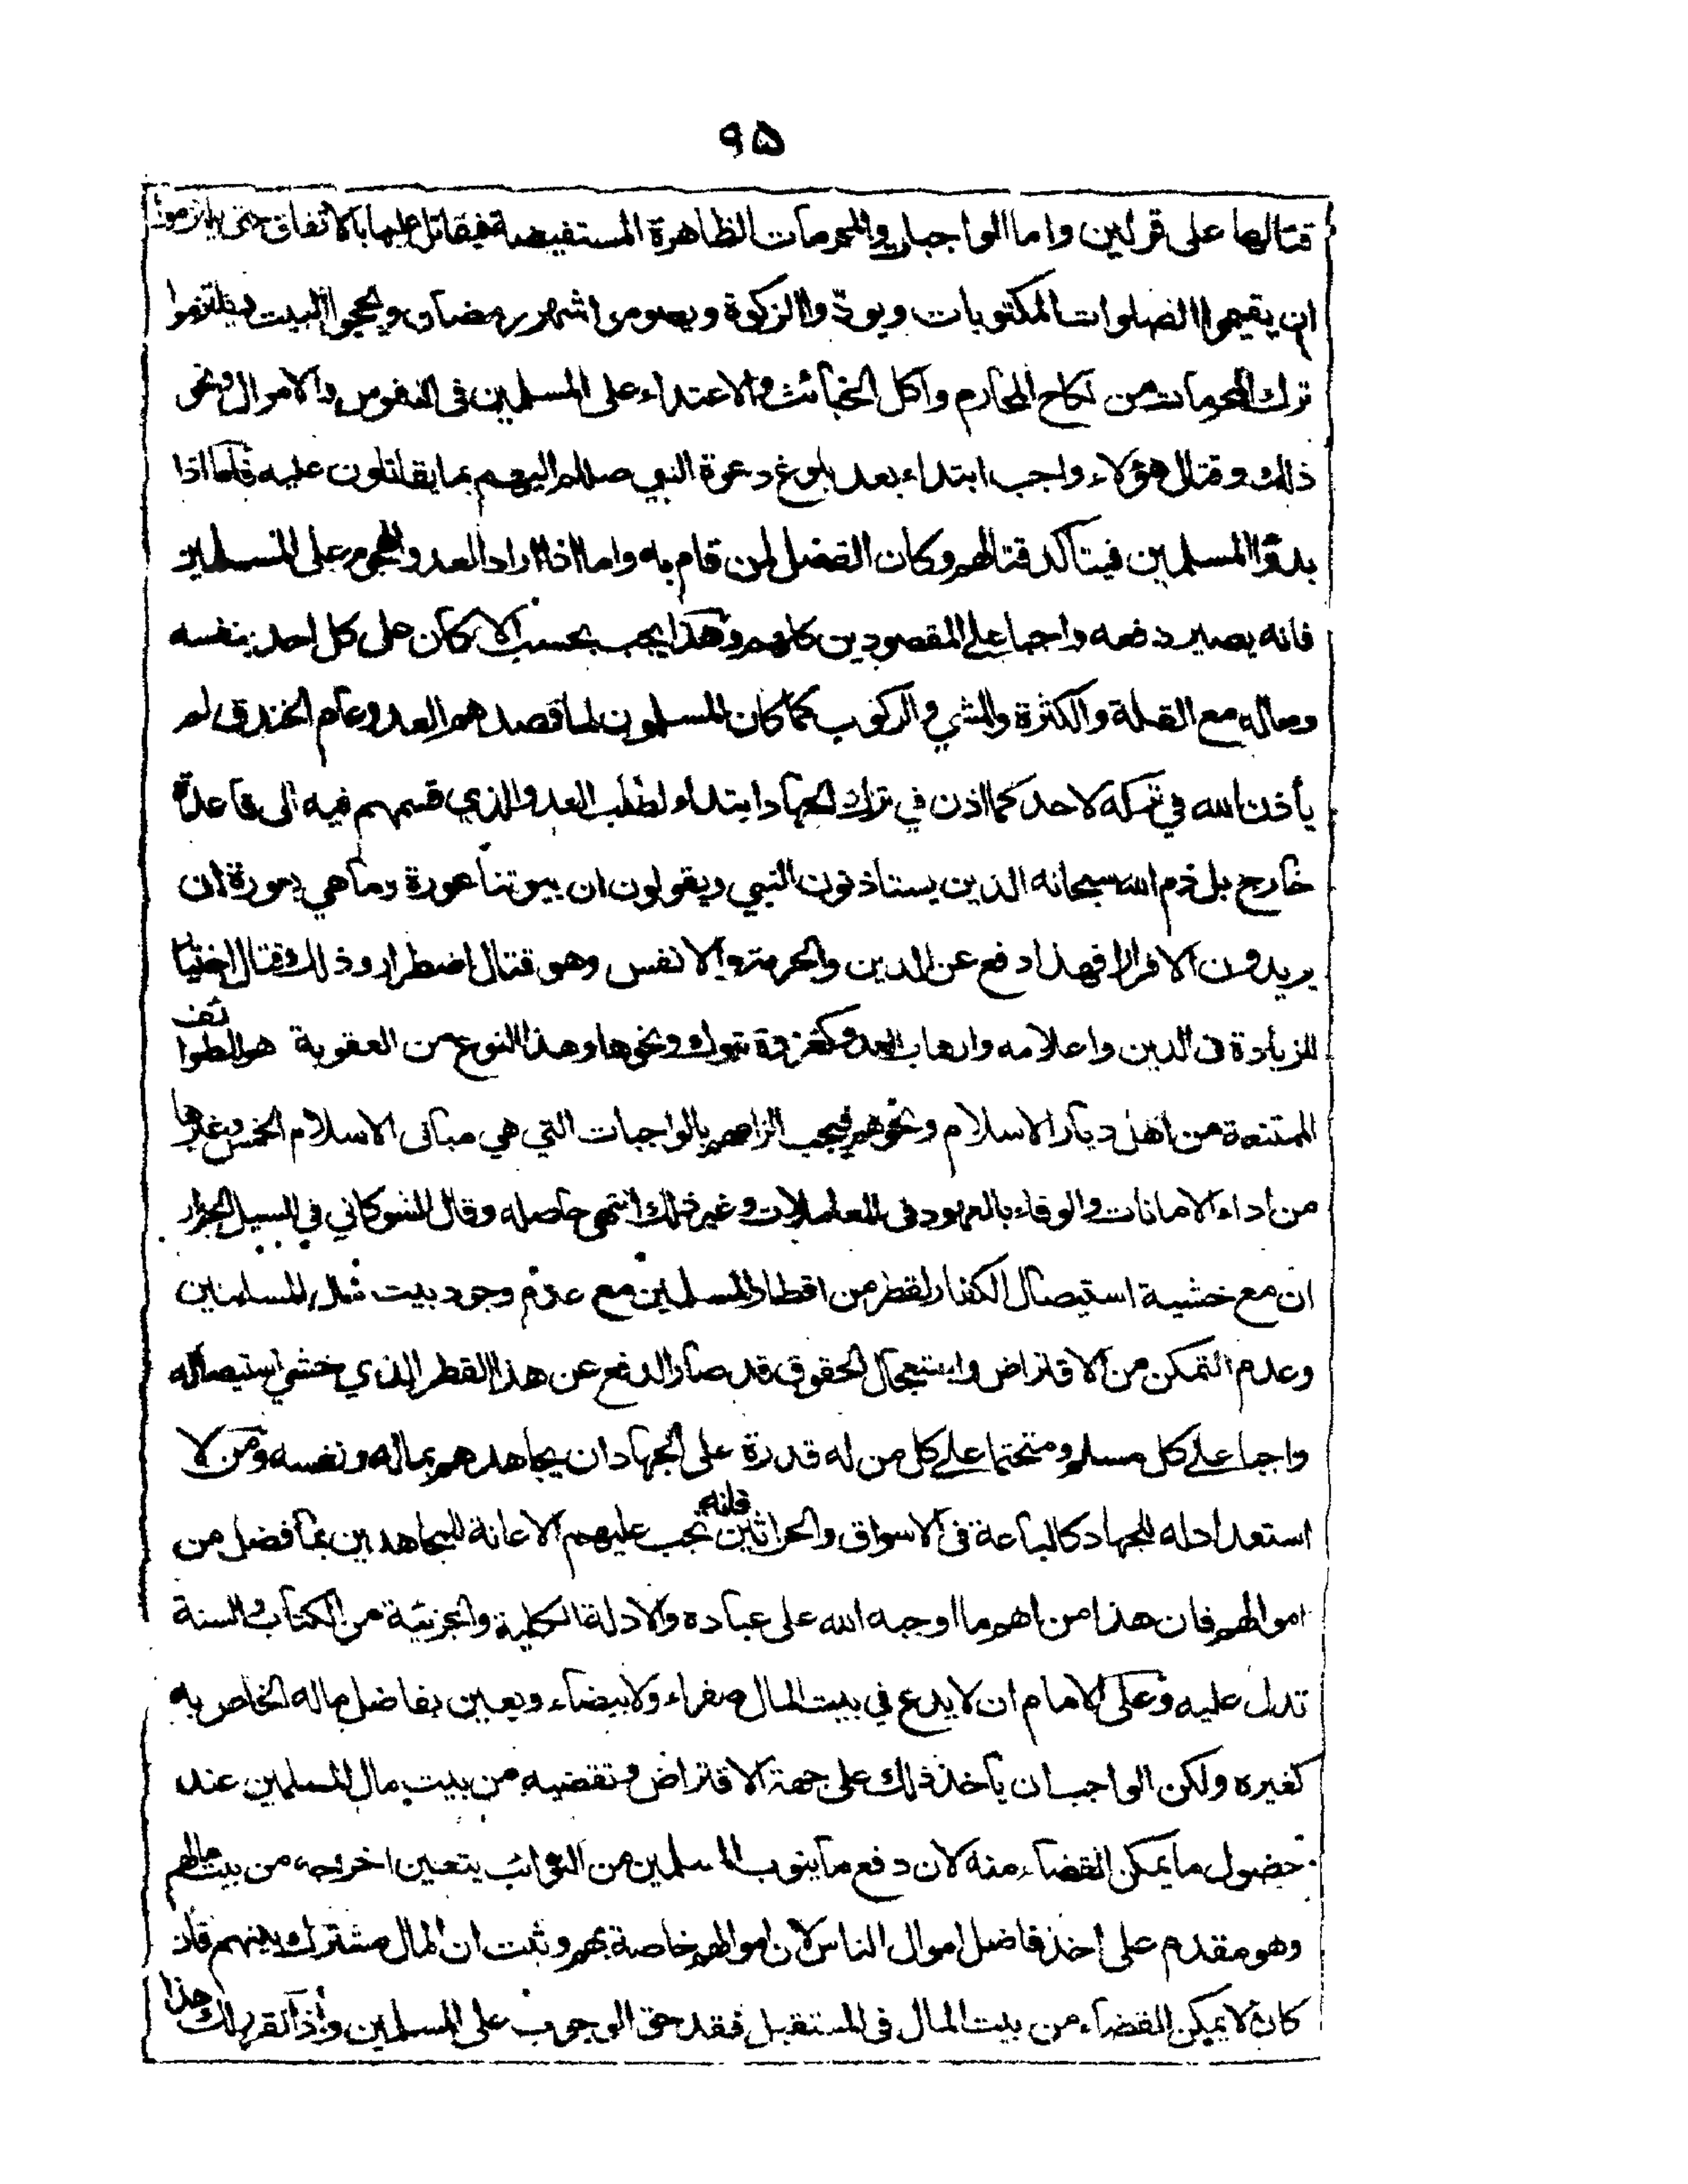 ٩٥
قتالها على قولين واما الواجبات والمحرمات الظاهرة المستفيضة فيقاتل عليها بالاتفاق حتى يلتزموا
ان يقيموا الصلوات المكتوبات ويودّوا الزكوة ويصوموا شهر رمضان ويحجوا البيت ويلتزموا
ترك المحرمات من نكاح المحارم واكل الخبائث والاعتداء على المسلمين فى النفوس والاموال ونحو
ذلك وقتال هؤلاء واجب ابتداء بعد بلوغ دعوة النبي صللم اليهم بما يقاتلون عليه فاما اذا
بدؤا المسلمين فيتاكد قتالهم وكان الفضل لمن قام به واما اذا اراد العدو الهجوم على المسلمين
فانه يصير دفعه واجبا على المقصودين كلهم وهذا يجب بحسب الامكان على كل احد بنفسه
وماله مع القلة والكثرة والمشي والركوب كما كان المسلمون لما قصدهم العدو عام الخندق لم
يأذن الله في تركه لاحد كما اذن في ترك الجهاد ابتداء لطلب العدو الذي قسمهم فيه الى قاعد و
خارج بل ذم الله سبحانه الذين يستاذنون النبي ويقولون ان بيوتنا عورة وما هي بعورة ان
يريدون الا فرارا فهذا دفع عن الدين والحرمة والانفس وهو قتال اضطرار وذلك قتال اختيار
للزيادة فى الدين واعلامه وارهاب العدو كغزوة تبوك ونحوها وهذا النوع من العقوبة هو للطوائف
الممتنعة من اهل ديار الاسلام ونحوهم فيجب الزامهم بالواجبات التي هي مبانى الاسلام الخمس وغيرها
من اداء الامانات والوفاء بالعهود فى المعاملات وغير ذلك انتهى حاصله وقال الشوكاني في السيل الجرار
ان مع خشية استيصال الكفار لقطر من اقطار المسلمين مع عدم وجود بيت مال للمسلمين
وعدم التمكن من الاقتراض واستعجال الحقوق قد صار الدفع عن هذا القطر الذي خشي استيصاله
واجبا على كل مسلم ومتحتما على كل من له قدرة على الجهاد ان يجاهدهم بماله ونفسه ومن لا
استعداد له للجهاد كالباعة فى الاسواق والحراثين فانه تجب عليهم الاعانة للمجاهدين بما فضل من
اموالهم فان هذا من اهم ما اوجبه الله على عباده والادلة الكلية والجزئية من الكتاب والسنة
تدل عليه وعلى الامام ان لا يدع في بيت المال صفراء ولا بيضاء ويعين بفاضل ماله الخاص به
كغيره ولكن الواجب ان يأخذ ذلك على جهة الاقتراض وتقضيه من بيت مال المسلمين عند
حضول ما يمكن القضاء منه لان دفع ما ينوب المسلمين من النوائب يتعين اخراجه من بيت مالهم
وهو مقدم على اخذ فاضل اموال الناس لان اموالهم خاصة بهم وثبت ان المال مشترك بينهم فان
كان لا يمكن القضاء من بيت المال فى المستقبل فقد حق الوجوب على المسلمين واذا تقرر لك هذا